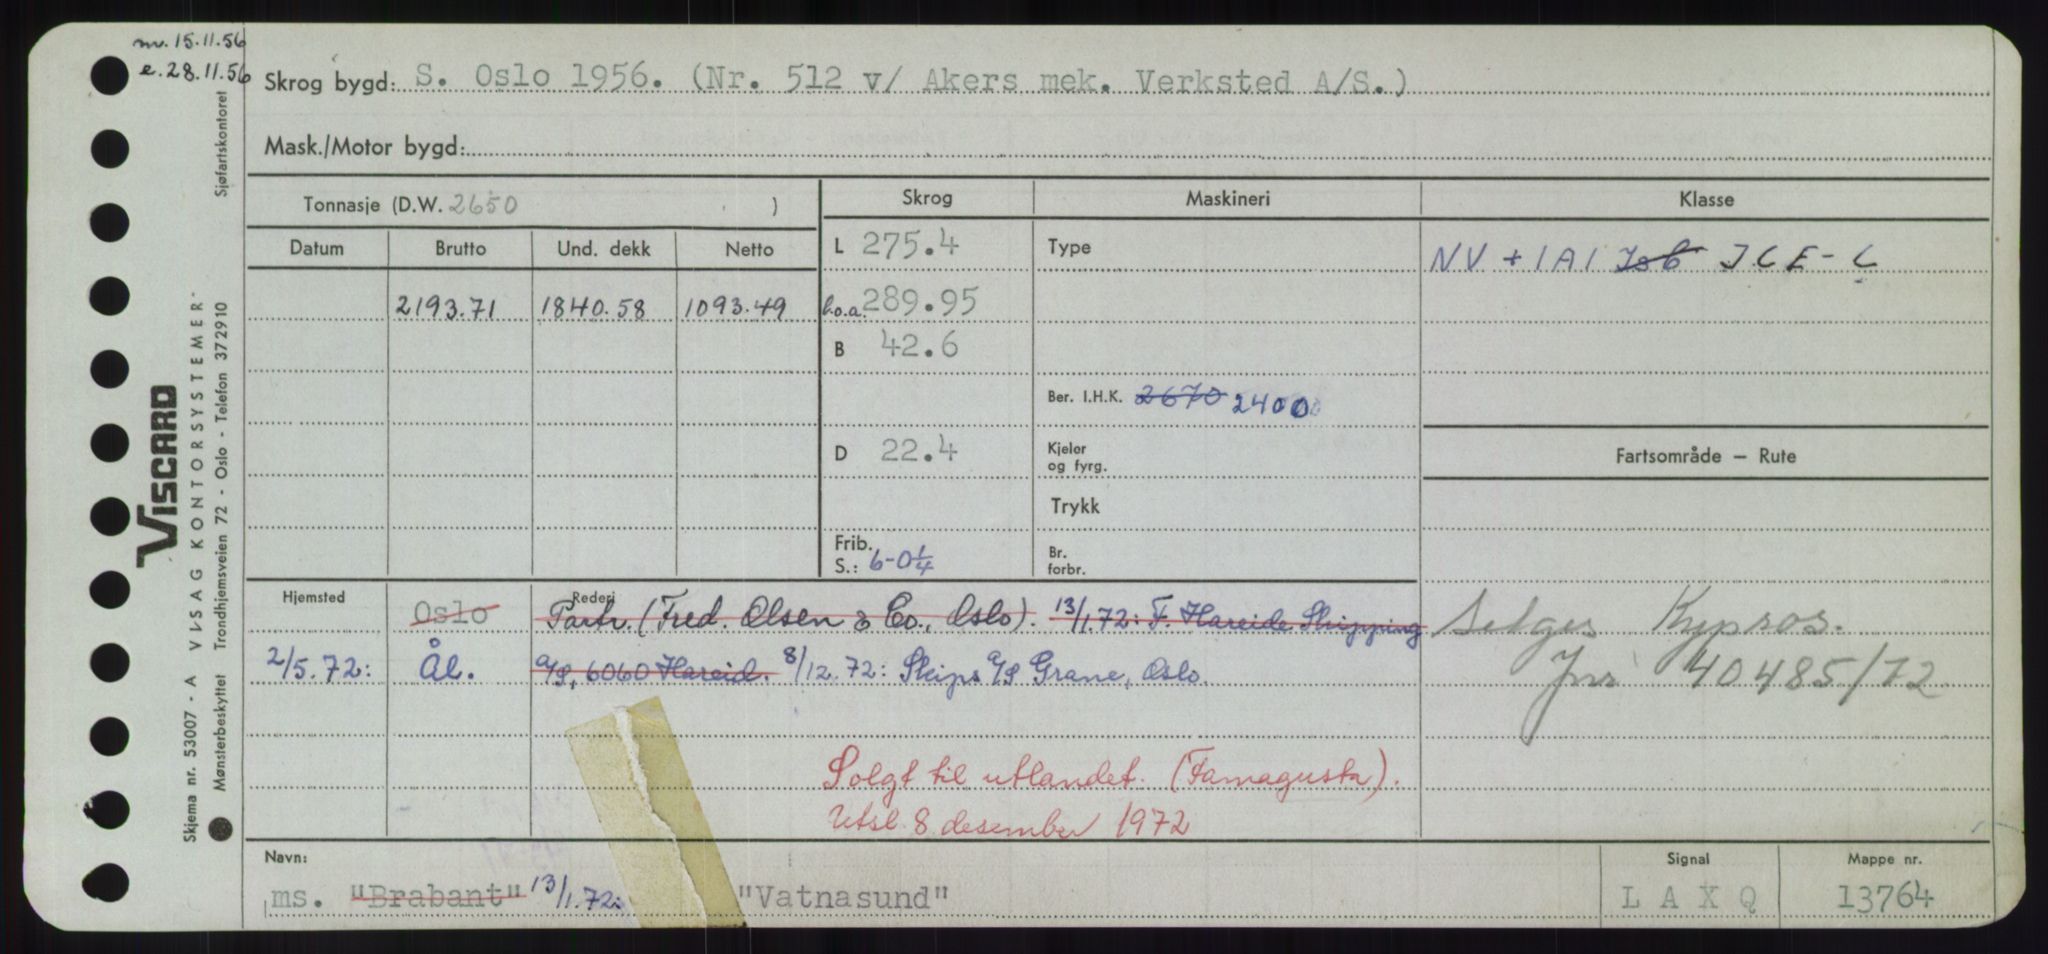 m. 15.11.56
e. 28.11.56
Skrog bygd: S. Oslo 1956. (Nr. 512 v/ Akers mek. Verksted A/S.)
Mask./Motor bygd:
Tonnasje (D.W. 2650 )
Skrog
Maskineri
Klasse
Datum Brutto Und. dekk Netto
L 275.4
Type
NV + 1A1 Isb ICE-C
2193.71 1840.58 1093.49
l.o.a. 289.95
B 42.6
Ber. I.H.K. 2670 2400
D 22.4
Kjeler
og fyrg.
Fartsområde – Rute
Trykk
Frib.
S.: 6-0¼
Br.
forbr.
Hjemsted
Rederi
Oslo Partr. (Fred. Olsen & Co., Oslo). 13/1.72: F. Hareide Shipping
Selges Kypros.
2/5.72: Ål. A/S, 6060 Hareid. 8/12.72: Skips A/S Grane, Oslo.
Jnr 40485/72
Solgt til utlandet. (Famagusta).
Utsl. 8 desember 1972
Navn:
Signal
Mappe nr.
ms. "Brabant" 13/1.72: "Vatnasund"
L A X Q
13764
VISCARD
Skjema nr. 53007 - A VISAG KONTORSYSTEMER
Mønsterbeskyttet Trondhjemsveien 72 - Oslo - Telefon 372910 Sjøfartskontoret